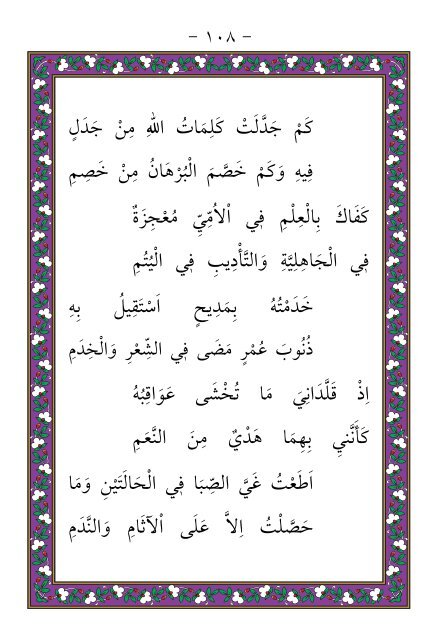 - ١٠٨ -
كَمْ جَدَّلَتْ كَلِمَاتُ اللهِ مِنْ جَدَلٍ
فِيهِ وَكَمْ خَصَّمَ الْبُرْهَانُ مِنْ خَصِمِ
كَفَاكَ بِالْعِلْمِ فِي اْلاُمِّيِّ مُعْجِزَةٌ
فِي الْجَاهِلِيَّةِ وَالتَّأْدِيبِ فِي الْيُتُمِ
خَدَمْتُهُ بِمَدِيحٍ اَسْتَقِيلُ بِهِ
ذُنُوبَ عُمْرٍ مَضَى فِي الشِّعْرِ وَالْخِدَمِ
اِذْ قَلَّدَانِيَ مَا تُخْشَى عَوَاقِبُهُ
كَأَنَّنِي بِهِمَا هَدْيٌ مِنَ النَّعَمِ
اَطَعْتُ غَيَّ الصِّبَا فِي الْحَالَتَيْنِ وَمَا
حَصَّلْتُ اِلاَّ عَلَى اْلآثَامِ وَالنَّدَمِ